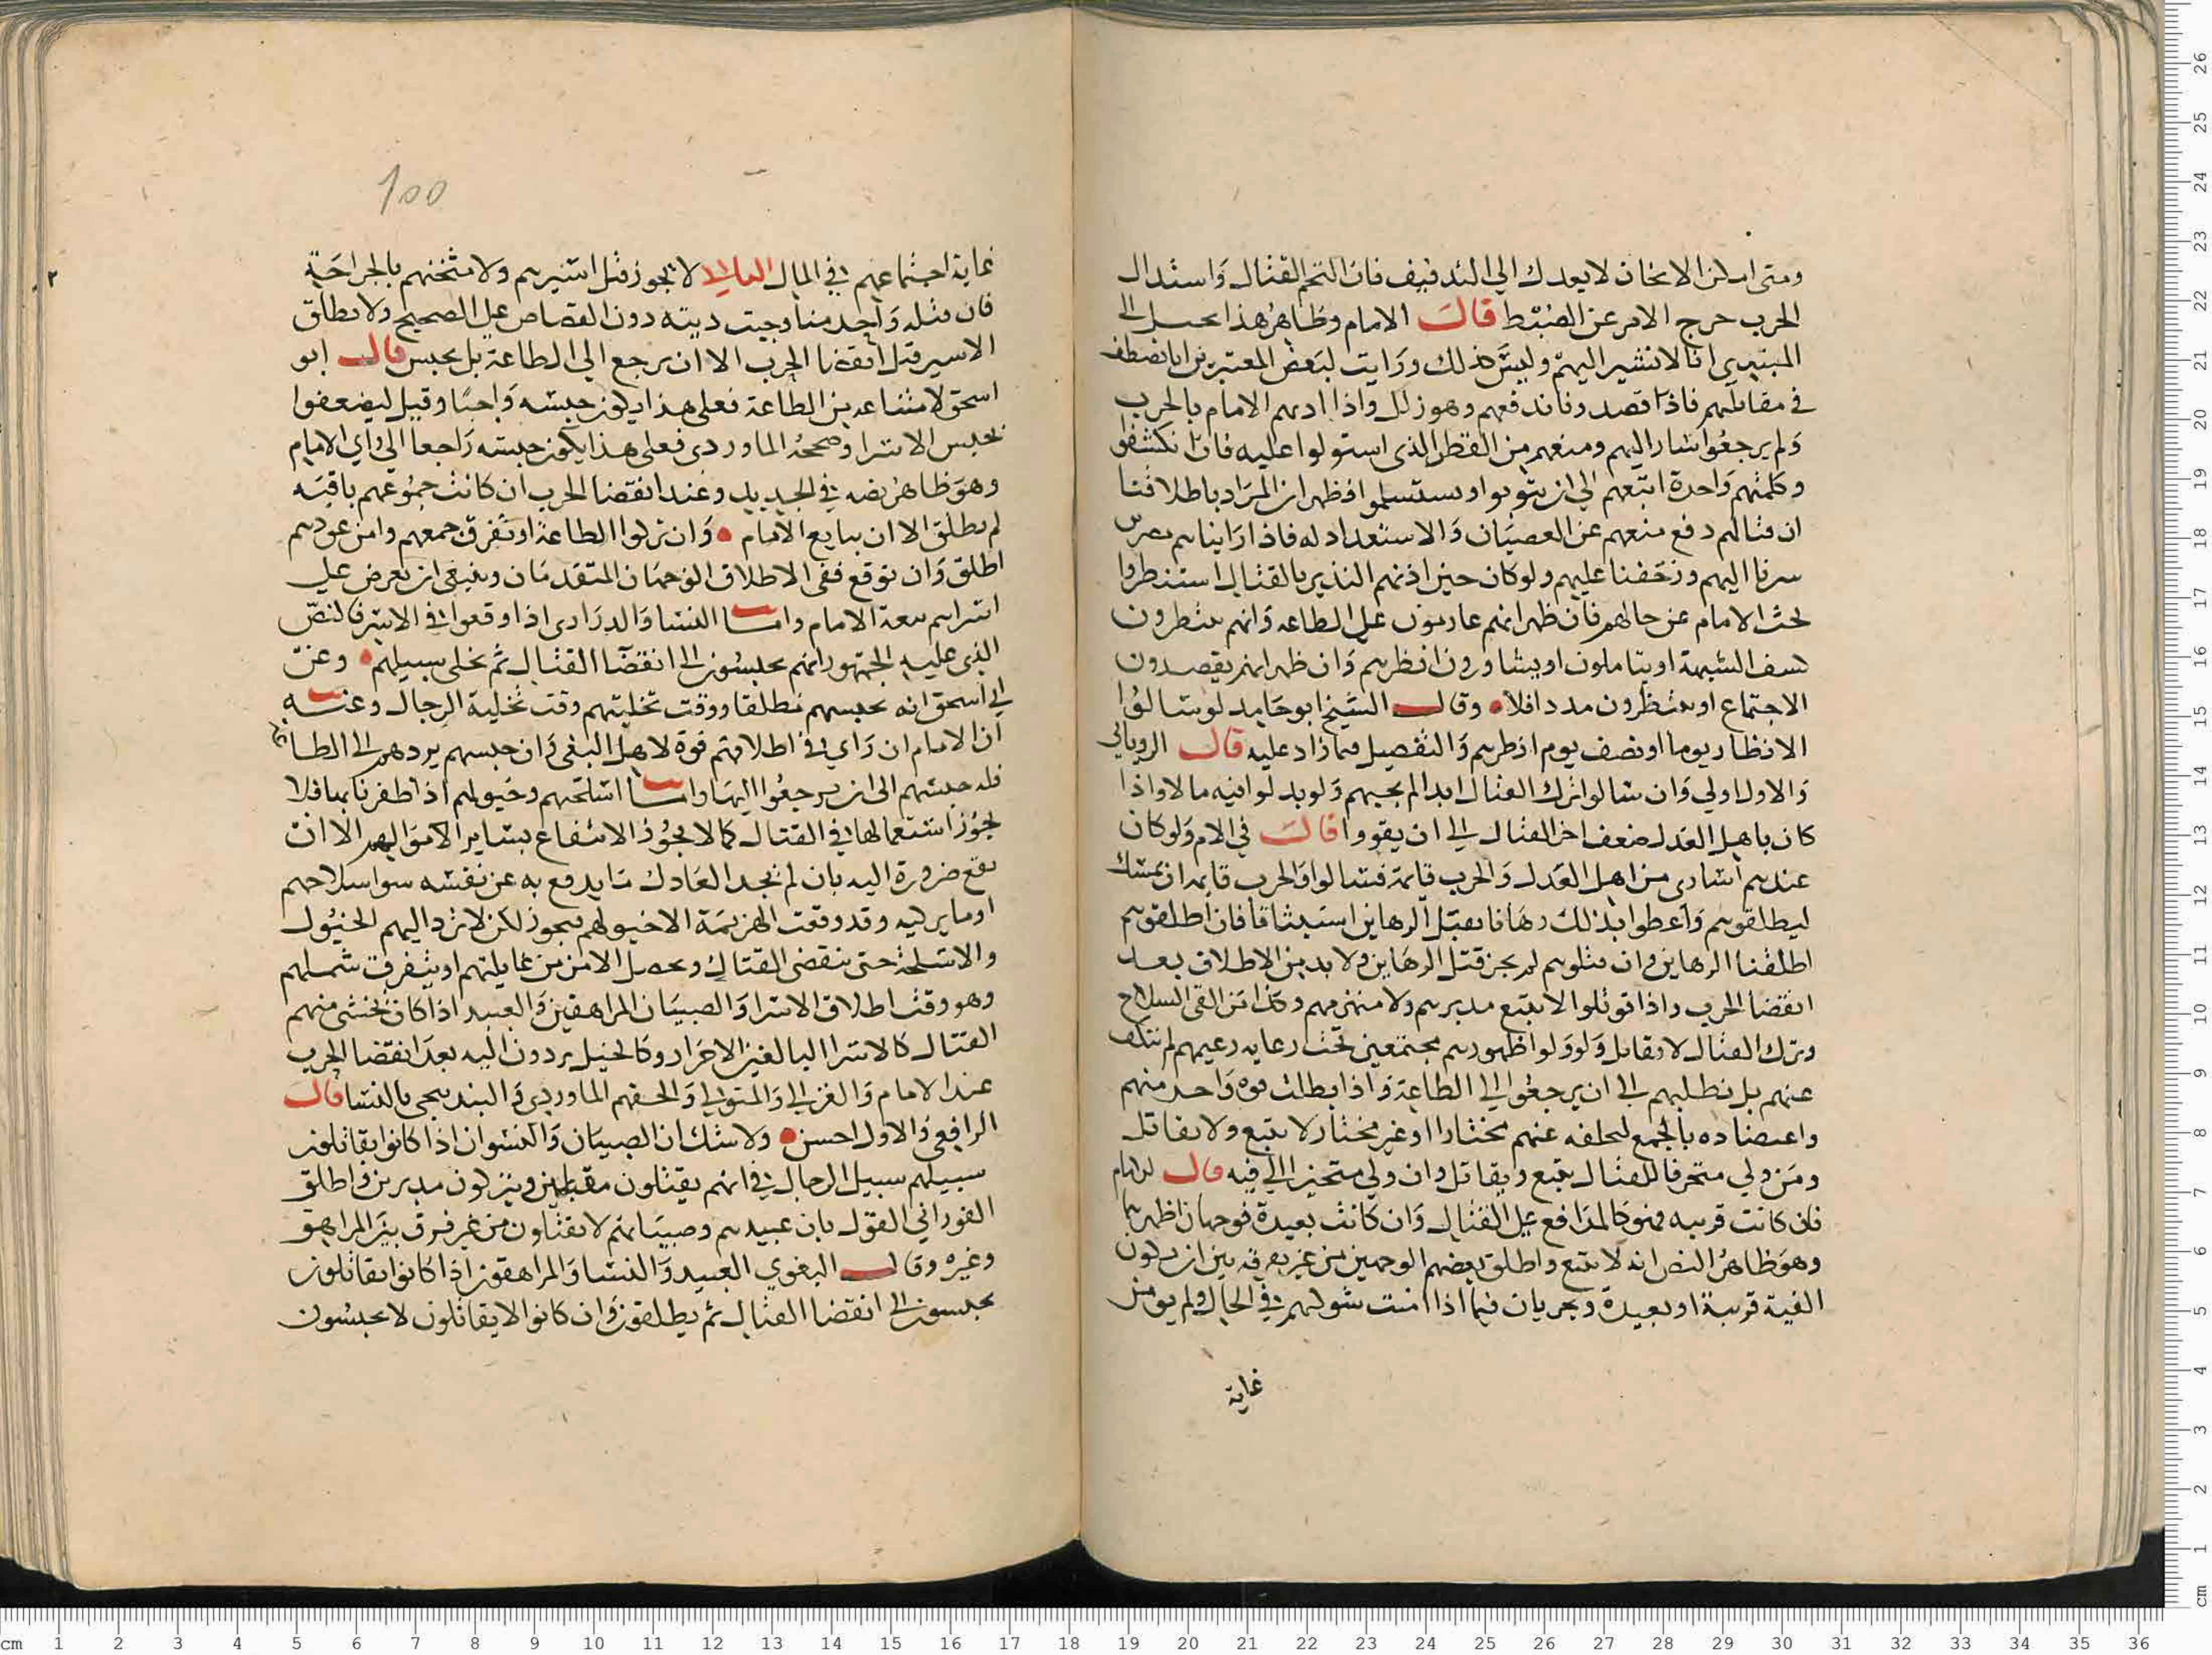 ومتى امكن الاثخان لا يعدل الى التدفيف فان التحم القتال واستدال
الحرب خرج الامر عن الضبط قال الامام وظاهر هذا
المبتدي انا لا نسير اليهم وليس كذلك ورايت لبعض المعتبرين انا نصطف
في مقابلتهم فاذا قصدونا ندفعهم وهو زلل واذا اذنهم الامام بالحرب
ولم يرجعوا سار اليهم ومنعهم من القطر الذي استولوا عليه فان انكشفوا
وكلمتهم واحدة اتبعهم الى ان يتوبوا او يستسلموا فظهر ان المراد باطلاقنا
ان قتالهم دفع منعهم عن العصيان والاستعداد له فاذا رايناهم
سرنا اليهم وزحفنا عليهم ولو كان حين اذنهم النذير بالقتال استنظروا
بحث الامام عن حالهم فان ظهر انهم عازمون على الطاعه وانهم ينتظرون
كشف الشبهة او يتاملون او يشاورون انظرهم وان ظهر انهم يقصدون
الاجتماع او ينتظرون مددا فلا وقال الشيخ ابو حامد لو سالوا
الانظار يوما او نصف يوم انظرهم والتفصيل فما زاد عليه قال الروياني
والاول اولى وان سالوا ترك القتال ابدا لم يجبهم ولو بدلوا فيه مالا واذا
كان باهل العدل ضعف اخر القتال الى ان يقووا قال في الام ولو كان
عندهم اسارى من اهل العدل والحرب قائمة فسالوا والحرب قائمه ان نمسك
ليطلقوهم واعطوا بذلك رهانا نقبل الرهاين استيثاقا فان اطلقوهم
اطلقنا الرهاين وان قتلوهم لم يجز قتل الرهاين ولا بد من الاطلاق بعد
انقضا الحرب واذا قوتلوا لا يتبع مدبرهم ولا منهزمهم وكذا من القى السلاح
وترك القتال لا يقاتل ولو ولوا ظهورهم مجتمعين تحت راية زعيمهم لم ننكف
عنهم بل نطلبهم الى ان يرجعوا الى الطاعة واذا بطلت قوة واحد منهم
واعتضاده بالجمع لتخلفه عنهم مختارا او غير مختار لا يتبع ولا يقاتل
ومن ولي متحرفا للقتال يتبع ويقاتل وان ولي متحيزا الى فئه قال الامام
فان كانت قريبه فهو كالمدافع على القتال وان كانت بعيدة فوجهان اظهرهما
وهو ظاهر النص انه لا يتبع واطلق بعضهم الوجهين من غير تفرقه بين ان تكون
الفية قريبة او بعيدة ويجريان فيما اذا امنت شوكتهم في الحال ولم يومن
غاية
100
غاية اجتماعهم في المال لا يجوز قتل اسيرهم ولا مثخنهم بالجراحة
فان قتله واحد منا وجبت ديته دون القصاص على الصحيح ولا يطلق
الاسير قبل انقضا الحرب الا ان يرجع الى الطاعة بل يحبس قال ابو
اسحق لامتناعه من الطاعة فعلى هذا يكون حبسه واجبا وقيل ليضعفوا
بحبس الاسرا وصححه الماوردى فعلى هذا يكون حبسه راجعا الى راي الامام
وهو ظاهر نصه في الجديد وعند انقضا الحرب ان كانت جموعهم باقيه
لم يطلق الا ان يبايع الامام وان تركوا الطاعة او تفرق جمعهم وامن عودهم
اطلق وان توقع ففي الاطلاق الوجهان المتقدمان وينبغي ان تعرض على
اسراهم بيعة الامام واما النسا والذرارى اذا وقعوا في الاسر فالنص
الذي عليه الجمهور انهم يحبسون الى انقضا القتال ثم يخلى سبيلهم وعن
ابي اسحق انه يحبسهم مطلقا ووقت تخليتهم وقت تخلية الرجال وعنه
ان الامام ان راى في اطلاقهم قوة لاهل البغي وان حبسهم يردهم الى الطاعة
فله حبسهم الى ان يرجعوا اليها واما اسلحتهم وخيولهم اذا ظفرنا بها فلا
يجوز استعمالها في القتال كما لا يجوز الانتفاع بساير الاموالهم الا ان
تقع ضرورة اليه بان لم يجد العادل ما يدفع به عن نفسه سوا سلاحهم
او ما يركبه وقد وقعت الهزيمة الا خيولهم فيجوز لكن لا نرد اليهم الخيول
والاسلحة حتى ينقضي القتال ويحصل الامن من غايلتهم او يتفرق شملهم
وهو وقت اطلاق الاسرا والصبيان المراهقين والعبيد اذا كان يخشى منهم
القتال كالاسرا البالغين الاحرار وكالخيل يردون اليه بعد انقضا الحرب
عند الامام والغزالي والمتولي والحقهم الماوردي والبندنيجي بالنسا قال
الرافعي والاول احسن ولا شك ان الصبيان والنسوان اذا كانوا يقاتلون
سبيلهم سبيل الرجال في انهم يقتلون مقبلين ويتركون مدبرين واطلق
الفوراني القول بان عبيدهم وصبيانهم لا يقتلون من غير فرق بين المراهق
وغيره وقال البغوي العبيد والنسا والمراهقون اذا كانوا يقاتلون
يحبسون الى انقضا القتال ثم يطلقون وان كانوا لا يقاتلون لا يحبسون